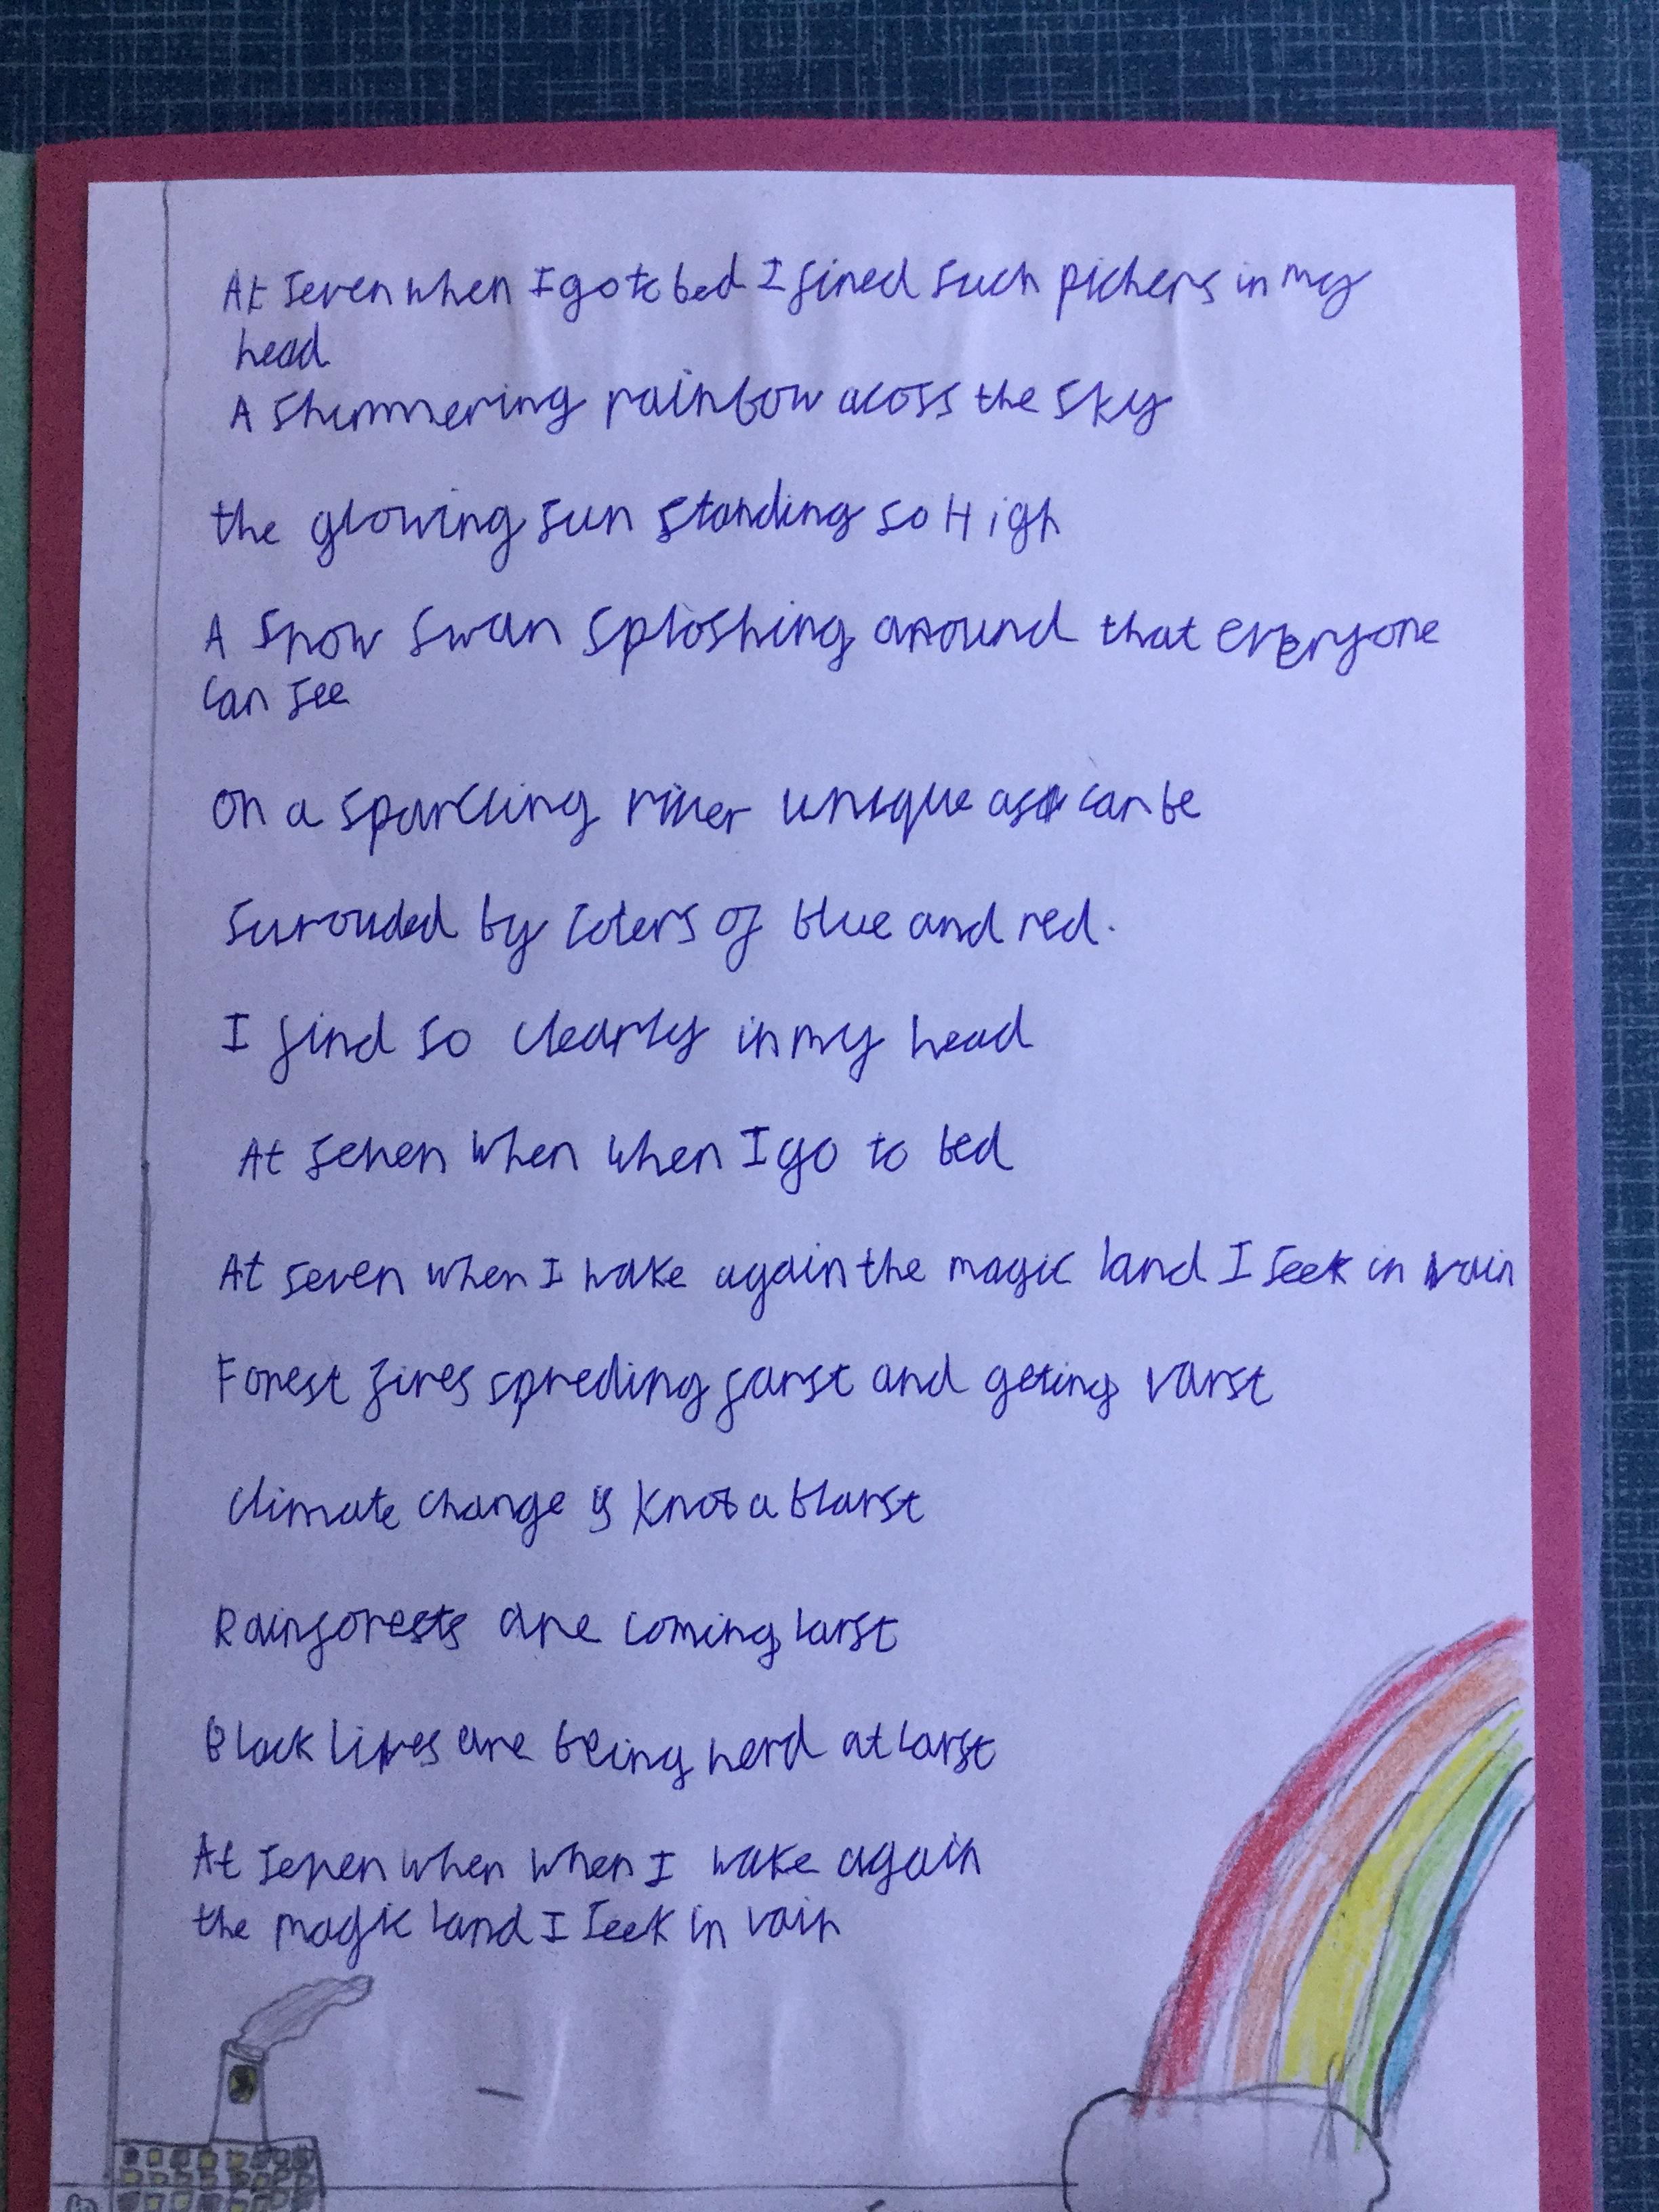 At seven when I go to bed I fined such pichers in my
head
A shimmering rainbow acoss the sky
the glowing sun standing so High
A snow swan sploshing around that everyone
can see
on a sparcling river unique as can be
surouded by coters of blue and red.
I find so clearly in my head
At seven when when I go to bed
At seven when I wake again the magic land I seek in vain
Forest fires spreding farst and geting varst
climate change is knot a blarst
Rainforests are coming larst
Black lives are being herd at larst
At seven when when I wake again
the magic land I seek in vain